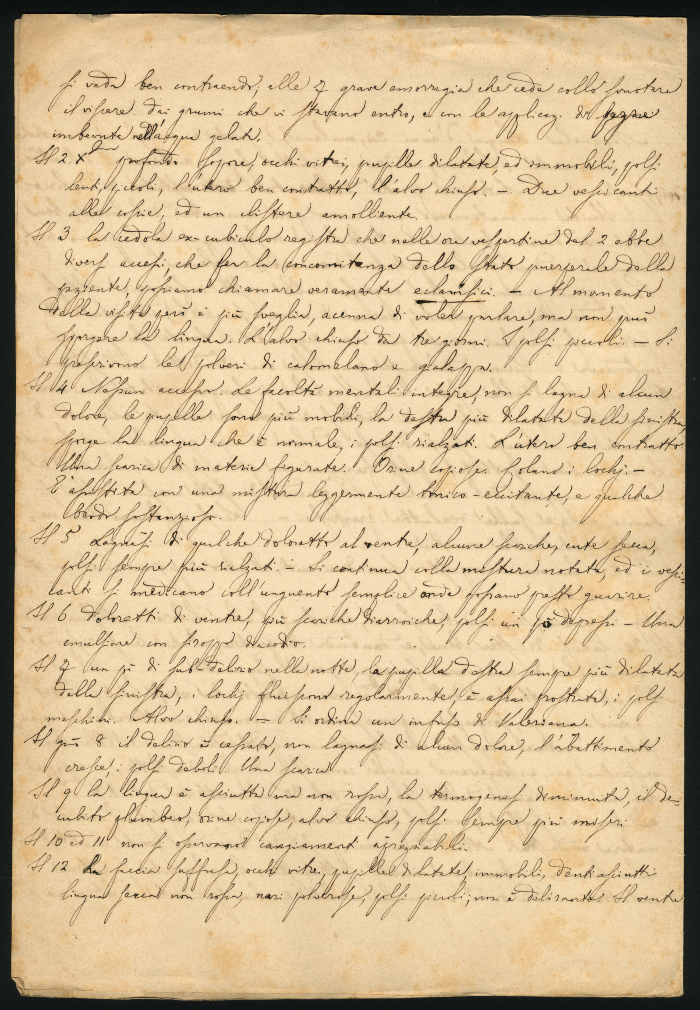 si vada ben contraendo, alle 7 grave emorragia che cede collo snuotare
il viscere dai grumi che vi stavano entro, e con le applicaz. di pezze
imbevute nell'acqua gelata.
Il 2 Xbre profondo sopore, occhi vitrei, pupille dilatate, ed immobili, polsi
lenti, piccoli, l'utero ben contratto, l'alvo chiuso. – Due vescicanti
alle coscie, ed un clistere amolliente.
Il 3 la cedola ex-cubiculo registra che nelle ore vespertine del 2 ebbe
diversi accessi, che per la concomitanza dello stato puerperale della
paziente possiamo chiamare veramente eclamsici. – Al momento
della visita però è più sveglia, accenna di voler parlare, ma non può
sporgere la lingua. L'alvo chiuso da tre giorni. I polsi piccoli. – Si
prescrivono le polveri di calomelano e gialappa.
Il 4 Nessun accesso. Le facoltà mentali integre, non si lagna di alcun
dolore, le pupille sono più mobili, la destra più dilatata della sinistra,
sporge la lingua che è normale, i polsi rialzati. L'utero ben contratto.
Una scarica di materie figurate. Orine copiose. Colano i lochj. –
È assistita con una mistura leggermente tonico-eccitante, e qualche
brodo sostanzioso.
Il 5 Lagnasi di qualche doloretto al ventre, alcune scariche, cute secca,
polsi sempre più rialzati. – Si continua colla mistura notata, ed i vesci-
canti si medicano coll'unguento semplice onde possano presto guarire.
Il 6 Doloretti di ventre, più scariche diarroiche, polsi un pò depressi – Una
emulsione con siroppo diacodio.
Il 7 un pò di sub-delirio nella notte, la pupilla destra sempre più dilatata
della sinistra, i lochj fluiscono regolarmente è assai prostrata, i polsi
meschini. Alvo chiuso. – Si ordina un infuso di Valeriana.
Il 8 il delirio è cessato, non lagnasi di alcun dolore, l'abbattimento
cresce, i polsi deboli. Una scarica
Il 9 la lingua è asciutta ma non rossa, la termogenesi diminuita, il de-
cubito plumbeo, orine copiose, alvo chiuso, polsi sempre più miseri
Il 10 ed 11 non si osservano cangiamenti apprezzabili.
Il 12 La faccia suffusa, occhi vitrei, pupille dilatate, immobili, denti asciutti
lingua secca non rossa, nari polverose, polsi piccoli; non è delirante. Il ventre